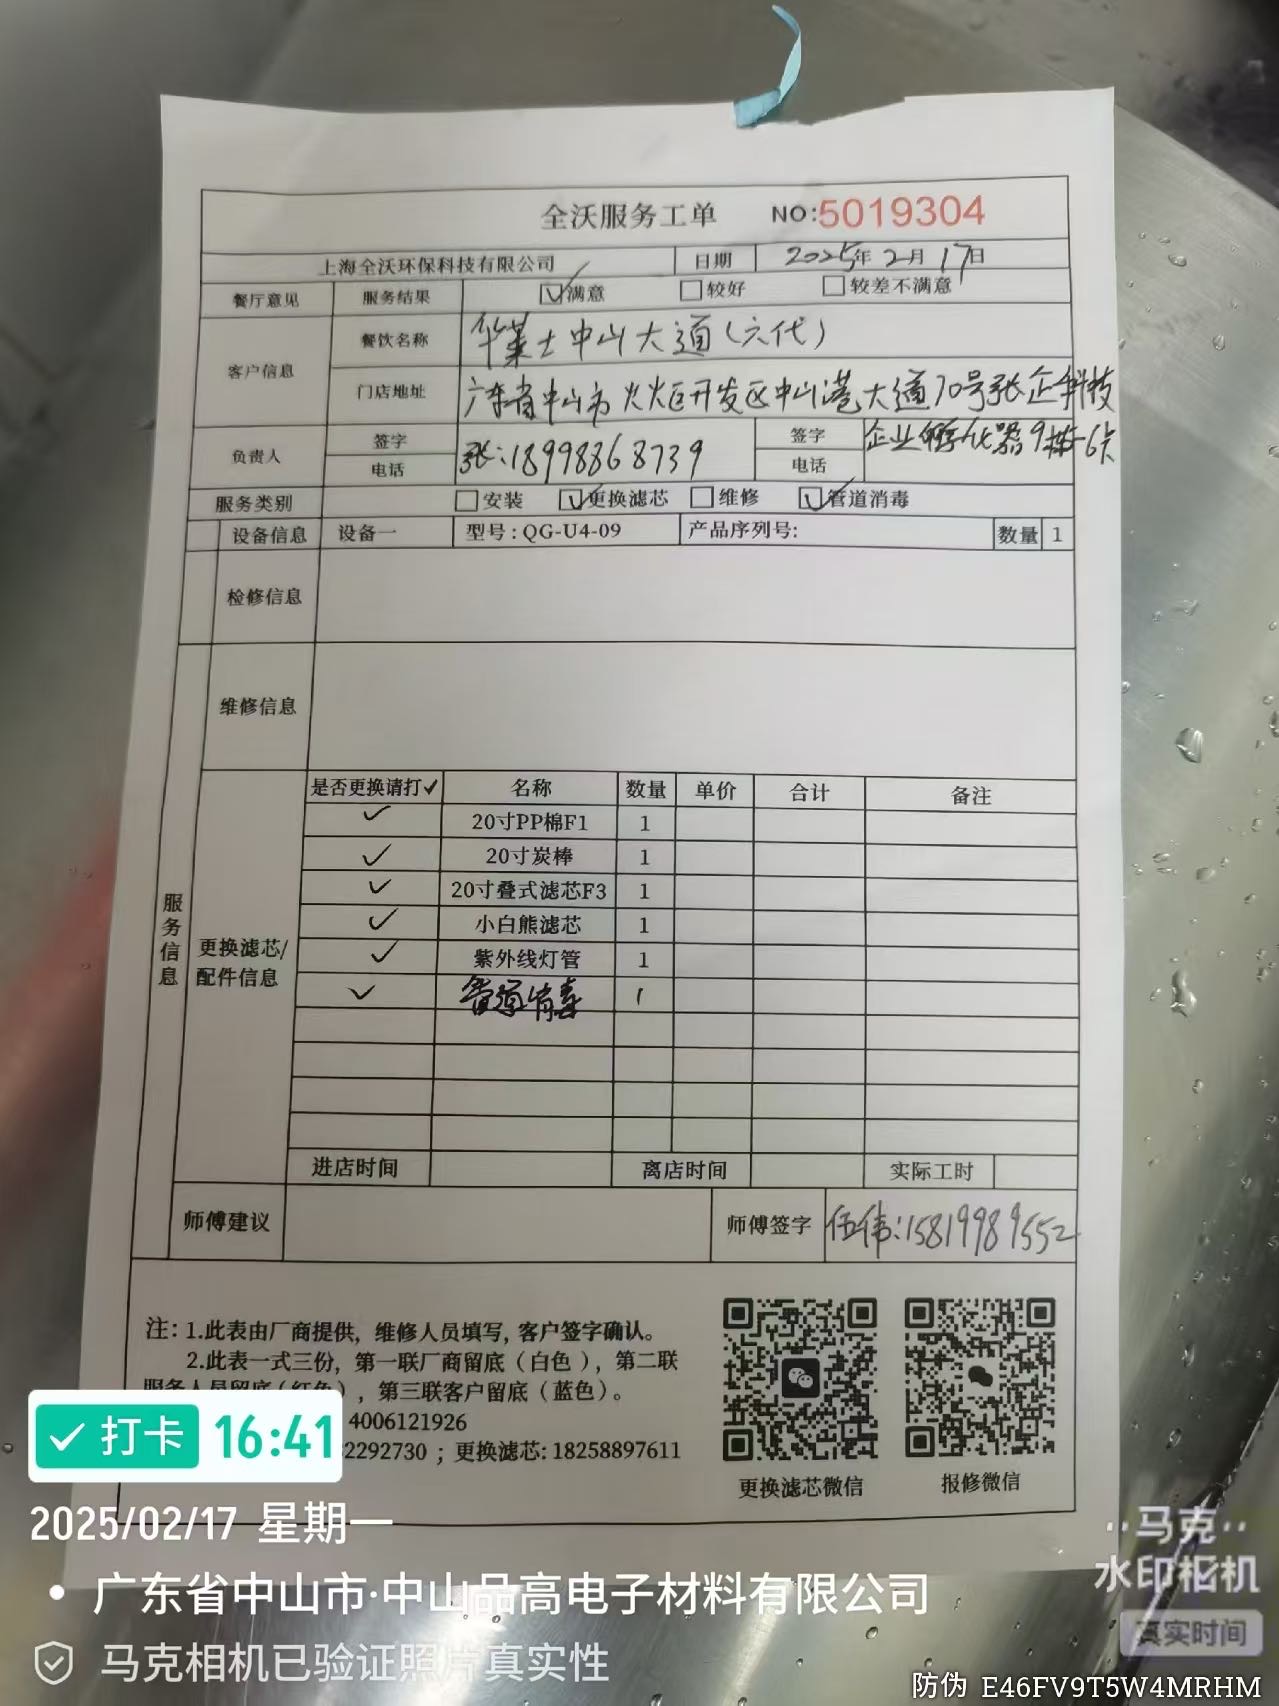 全沃服务工单 NO:5019304
上海全沃环保科技有限公司 日期 2025年2月17日
餐厅意见 服务结果 满意 较好 较差不满意
客户信息 餐饮名称 华莱士中山大道(六代)
门店地址 广东省中山市火火区开发区中山港大道70号张企科技
企业孵化器9栋6卡
负责人 签字 电话 张:18998868739 签字 电话
服务类别 安装 更换滤芯 维修 管道消毒
设备信息 设备一 型号:QG-U4-09 产品序列号: 数量 1
检修信息
维修信息
服务信息
更换滤芯/配件信息
是否更换请打✓ 名称 数量 单价 合计 备注
✓ 20寸PP棉F1 1
✓ 20寸炭棒 1
✓ 20寸叠式滤芯F3 1
✓ 小白熊滤芯 1
✓ 紫外线灯管 1
✓ 管道消毒 1
进店时间 离店时间 实际工时
师傅建议 师傅签字 伍伟:15819989552
注: 1.此表由厂商提供, 维修人员填写, 客户签字确认。
2.此表一式三份, 第一联厂商留底(白色), 第二联
服务人员留底(红色), 第三联客户留底(蓝色)。
4006121926
2292730 ; 更换滤芯: 18258897611
更换滤芯微信 报修微信
打卡 16:41
2025/02/17 星期一
广东省中山市·中山品高电子材料有限公司
马克相机已验证照片真实性
马克
水印相机
真实时间
防伪 E46FV9T5W4MRHM